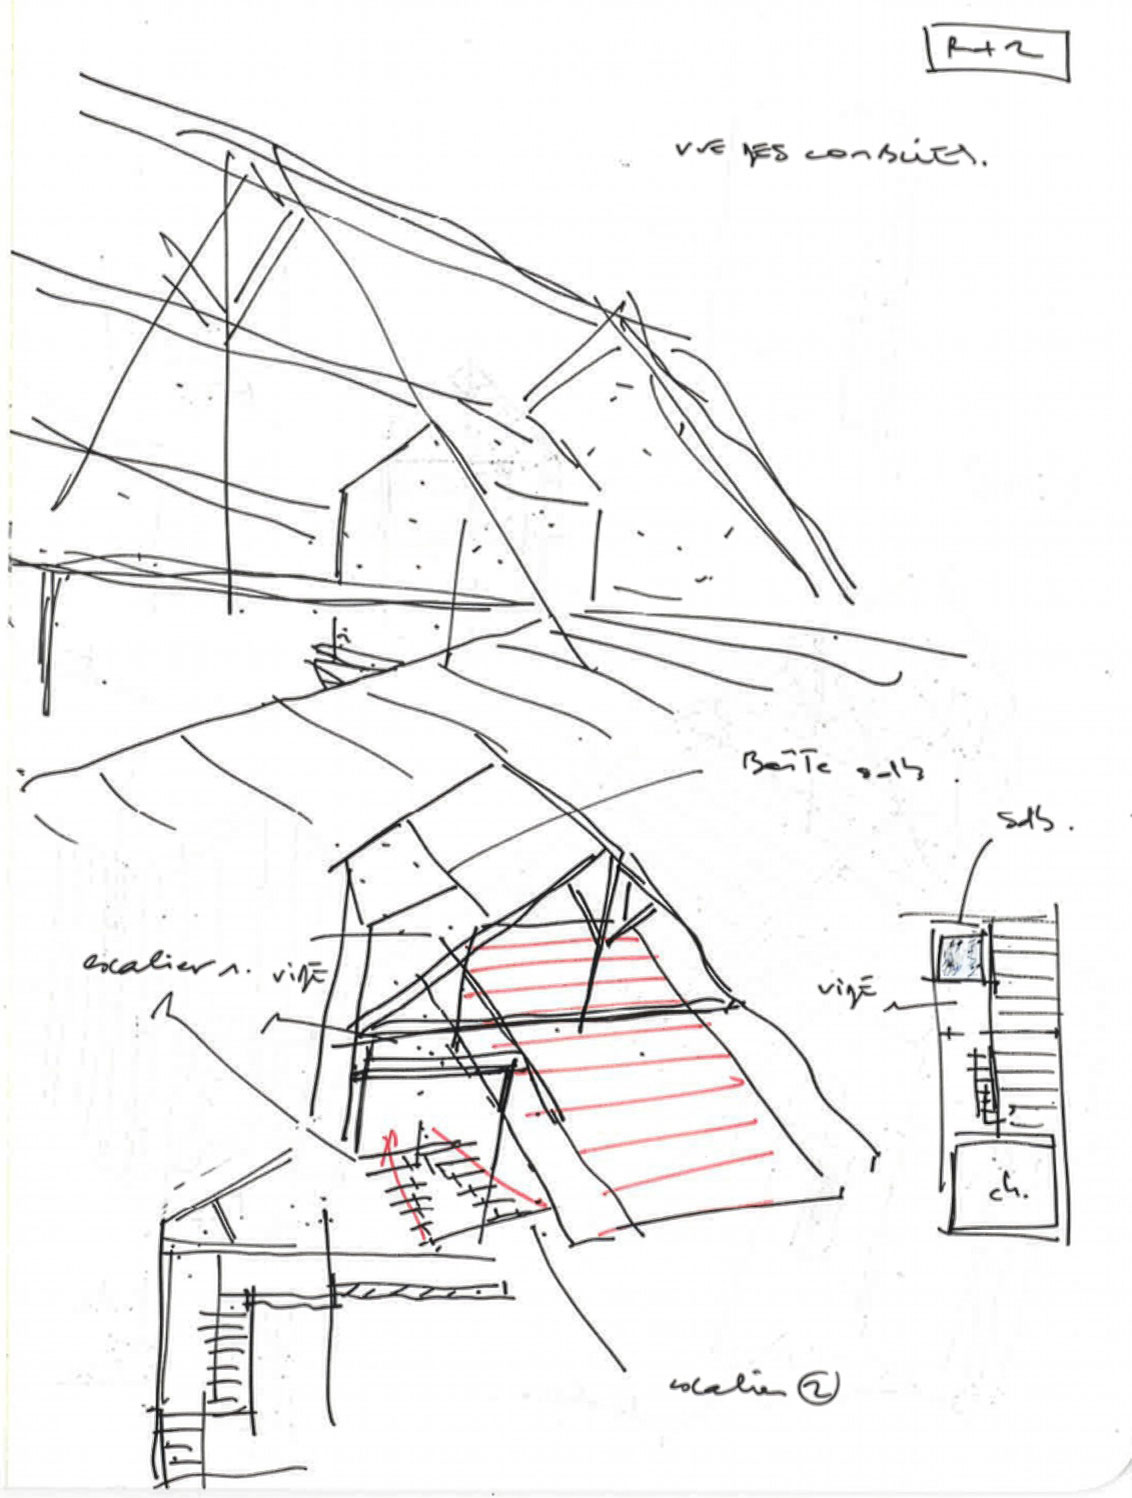 R+2
VUE DES COMBLES.
Boîte sdb
sdb.
escalier 1. VIDE
VIDE
ch.
escalier 2